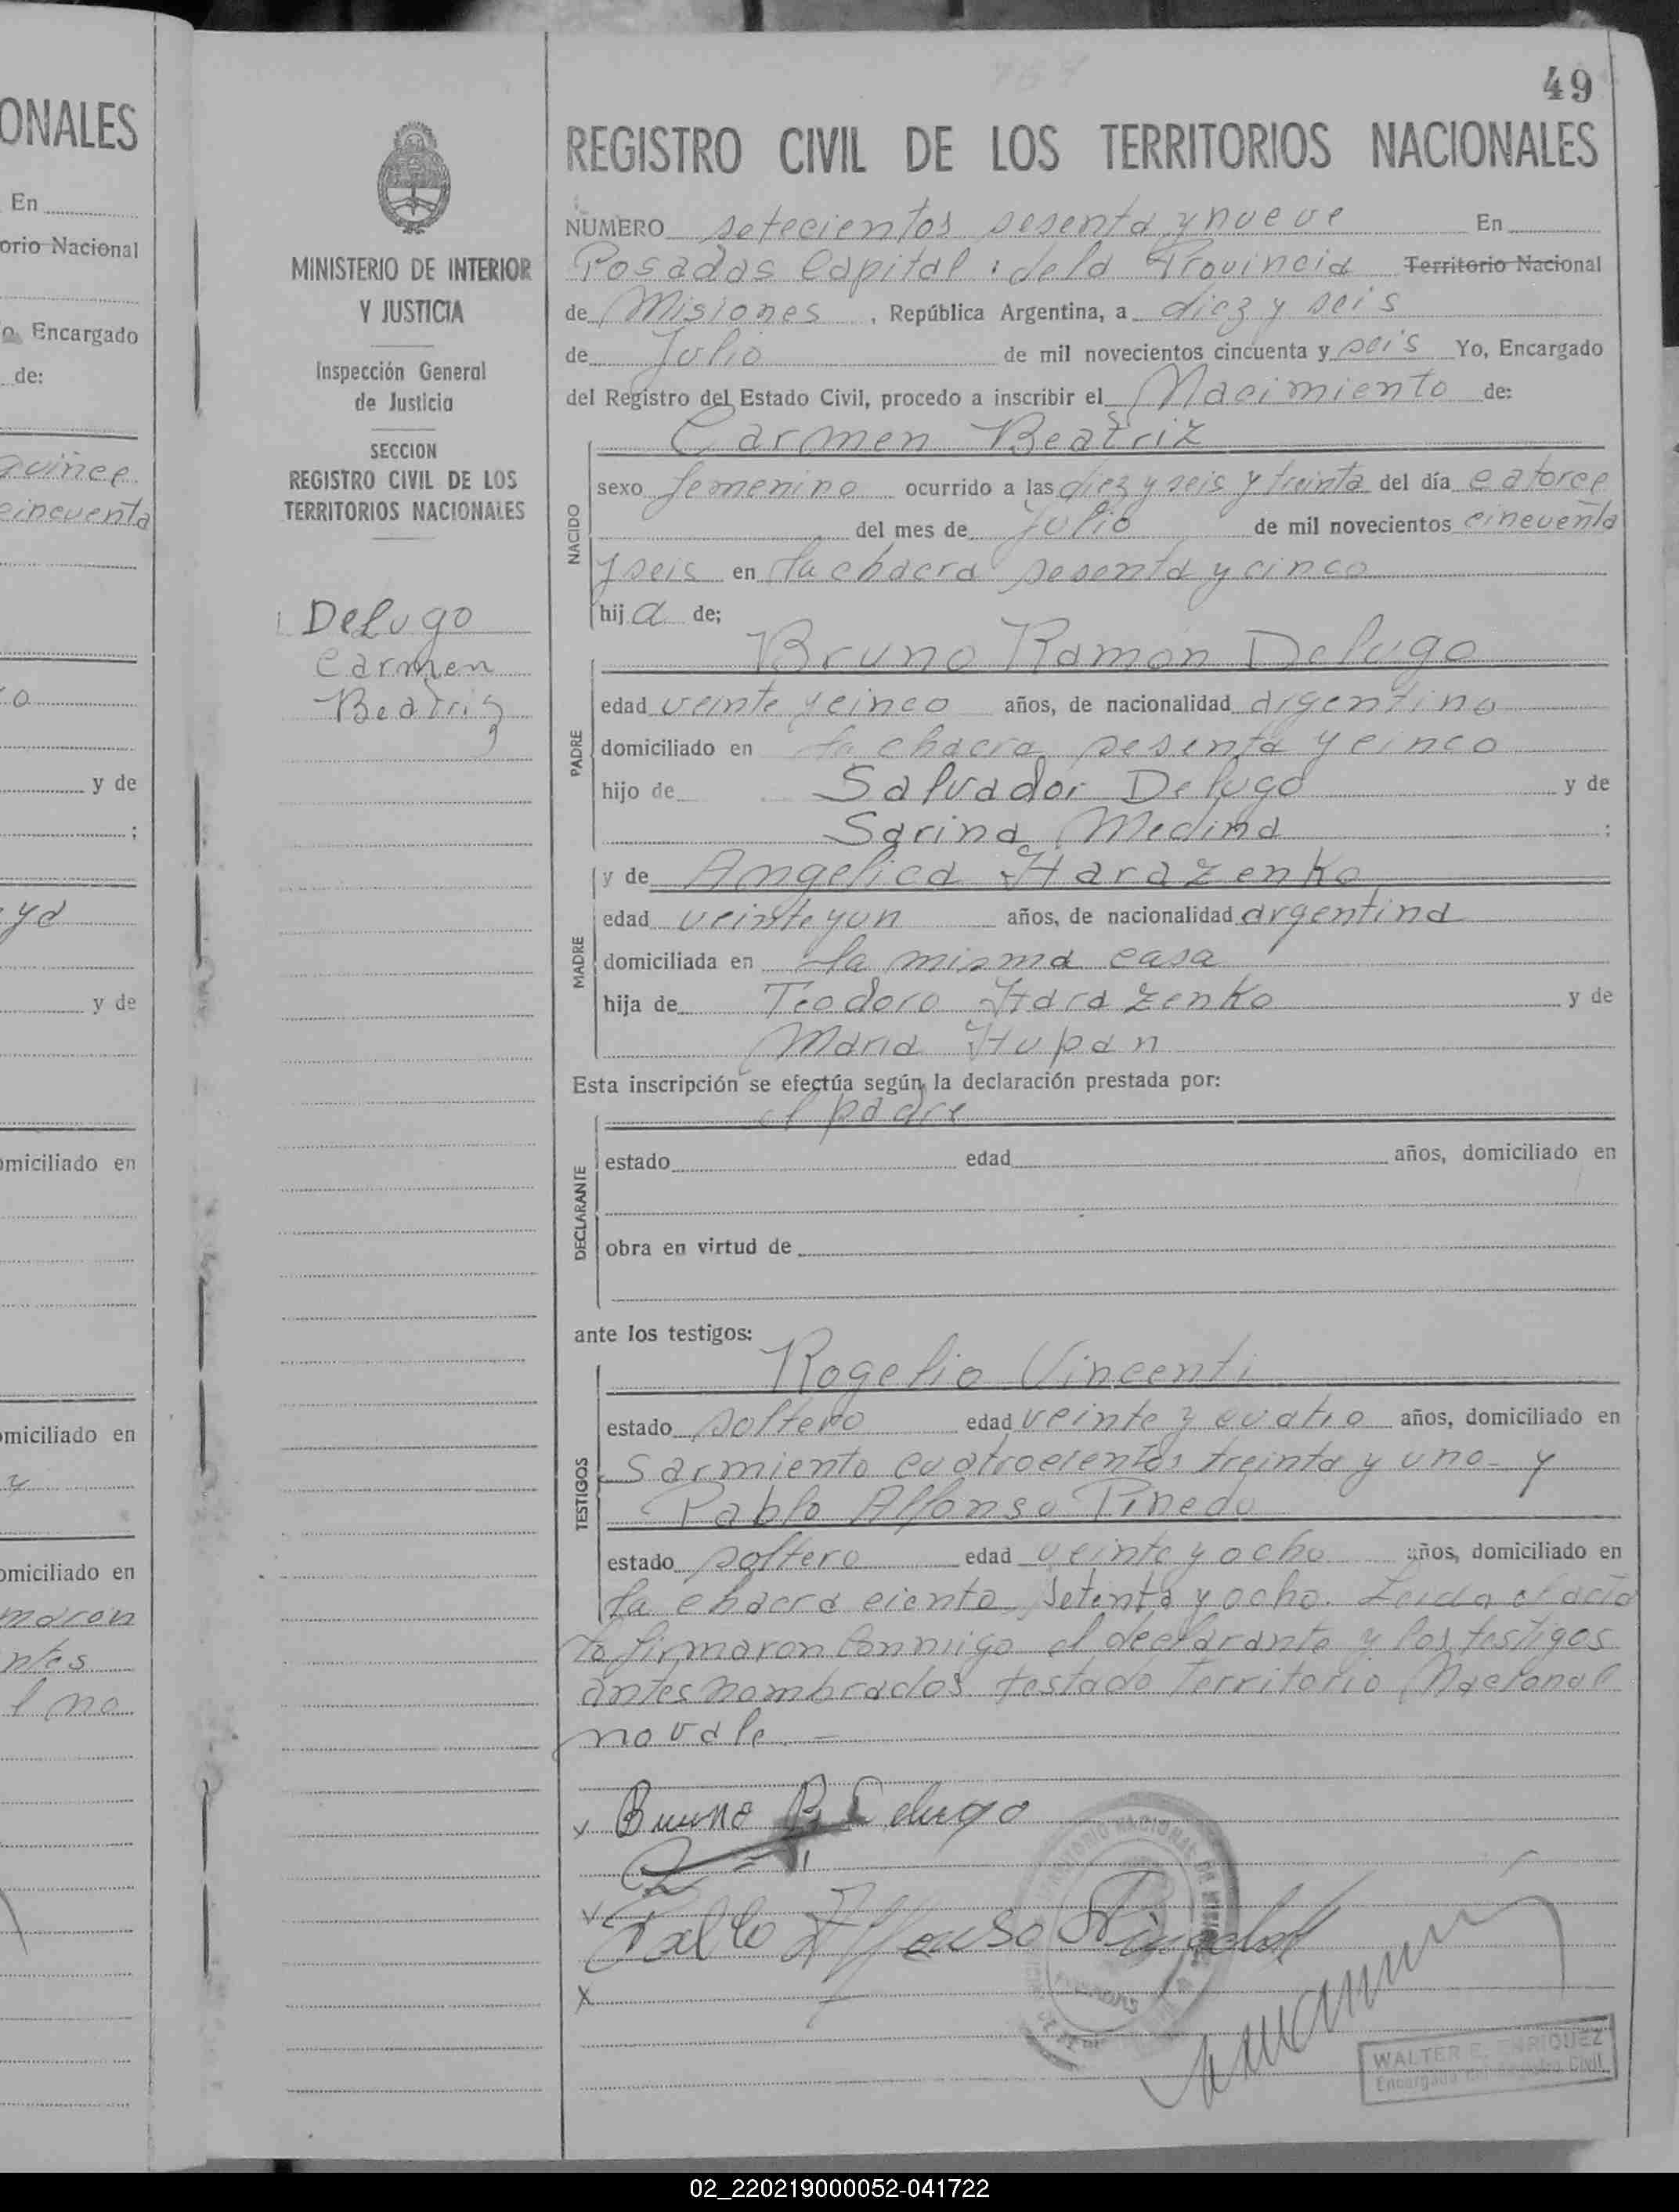 ONALES
En
orio Nacional
Encargado
de:
quince
cincuenta
o
y de
;
y d
y de
omiciliado en
omiciliado en
y
omiciliado en
maron
ntes
l no
MINISTERIO DE INTERIOR
Y JUSTICIA
Inspección General
de Justicia
SECCION
REGISTRO CIVIL DE LOS
TERRITORIOS NACIONALES
Delugo
Carmen
Beatriz
49
REGISTRO CIVIL DE LOS TERRITORIOS NACIONALES
NUMERO setecientos sesenta y nueve En
Posadas Capital de la Provincia Territorio Nacional
de Misiones, República Argentina, a diez y seis
de Julio de mil novecientos cincuenta y seis Yo, Encargado
del Registro del Estado Civil, procedo a inscribir el Nacimiento de:
Carmen Beatriz
NACIDO
sexo femenino ocurrido a las diez y seis y treinta del día catorce
del mes de Julio de mil novecientos cincuenta
y seis en la chacra sesenta y cinco
hija de;
Bruno Ramon Delugo
PADRE
edad veinte y cinco años, de nacionalidad argentino
domiciliado en la chacra sesenta y cinco
hijo de Salvador Delugo y de
Sarina Medina ;
y de Angelica Harazenko
MADRE
edad veinte y un años, de nacionalidad argentina
domiciliada en la misma casa
hija de Teodoro Harazenko y de
Maria Hupan
Esta inscripción se efectúa según la declaración prestada por:
el padre
DECLARANTE
estado edad años, domiciliado en
obra en virtud de
ante los testigos:
Rogelio Vincenti
TESTIGOS
estado soltero edad veinte y cuatro años, domiciliado en
Sarmiento cuatrocientos treinta y uno y
Pablo Alfonso Pinedo
estado soltero edad veinte y ocho años, domiciliado en
la chacra ciento setenta y ocho. Leida el acta
la firmaron conmigo el declarante y los testigos
antes nombrados testado Territorio Nacional
no vale.
x Bruno R Delugo
x
Pablo Alfonso
x
WALTER E. ENRIQUEZ
Encargado del Registro Civil
02_220219000052-041722